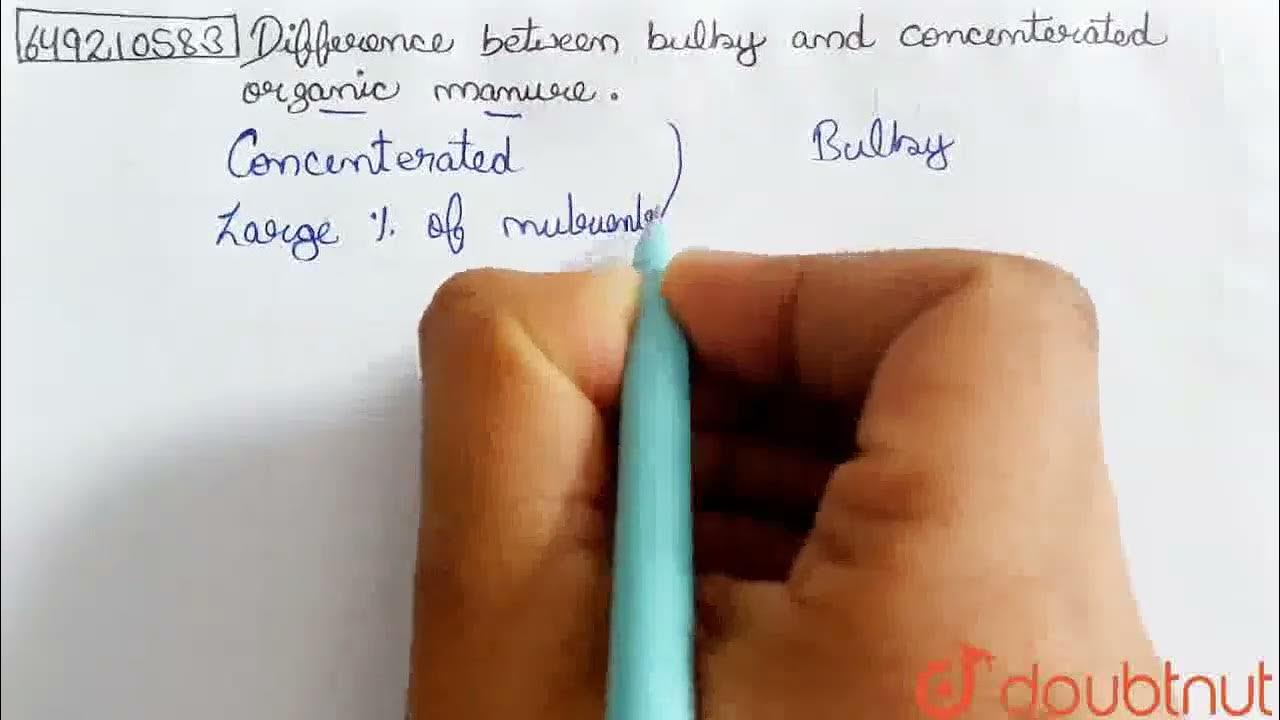 649210583 Difference between bulky and concenterated
organic manure.
Concenterated
Bulky
Large %. of
doubtnut